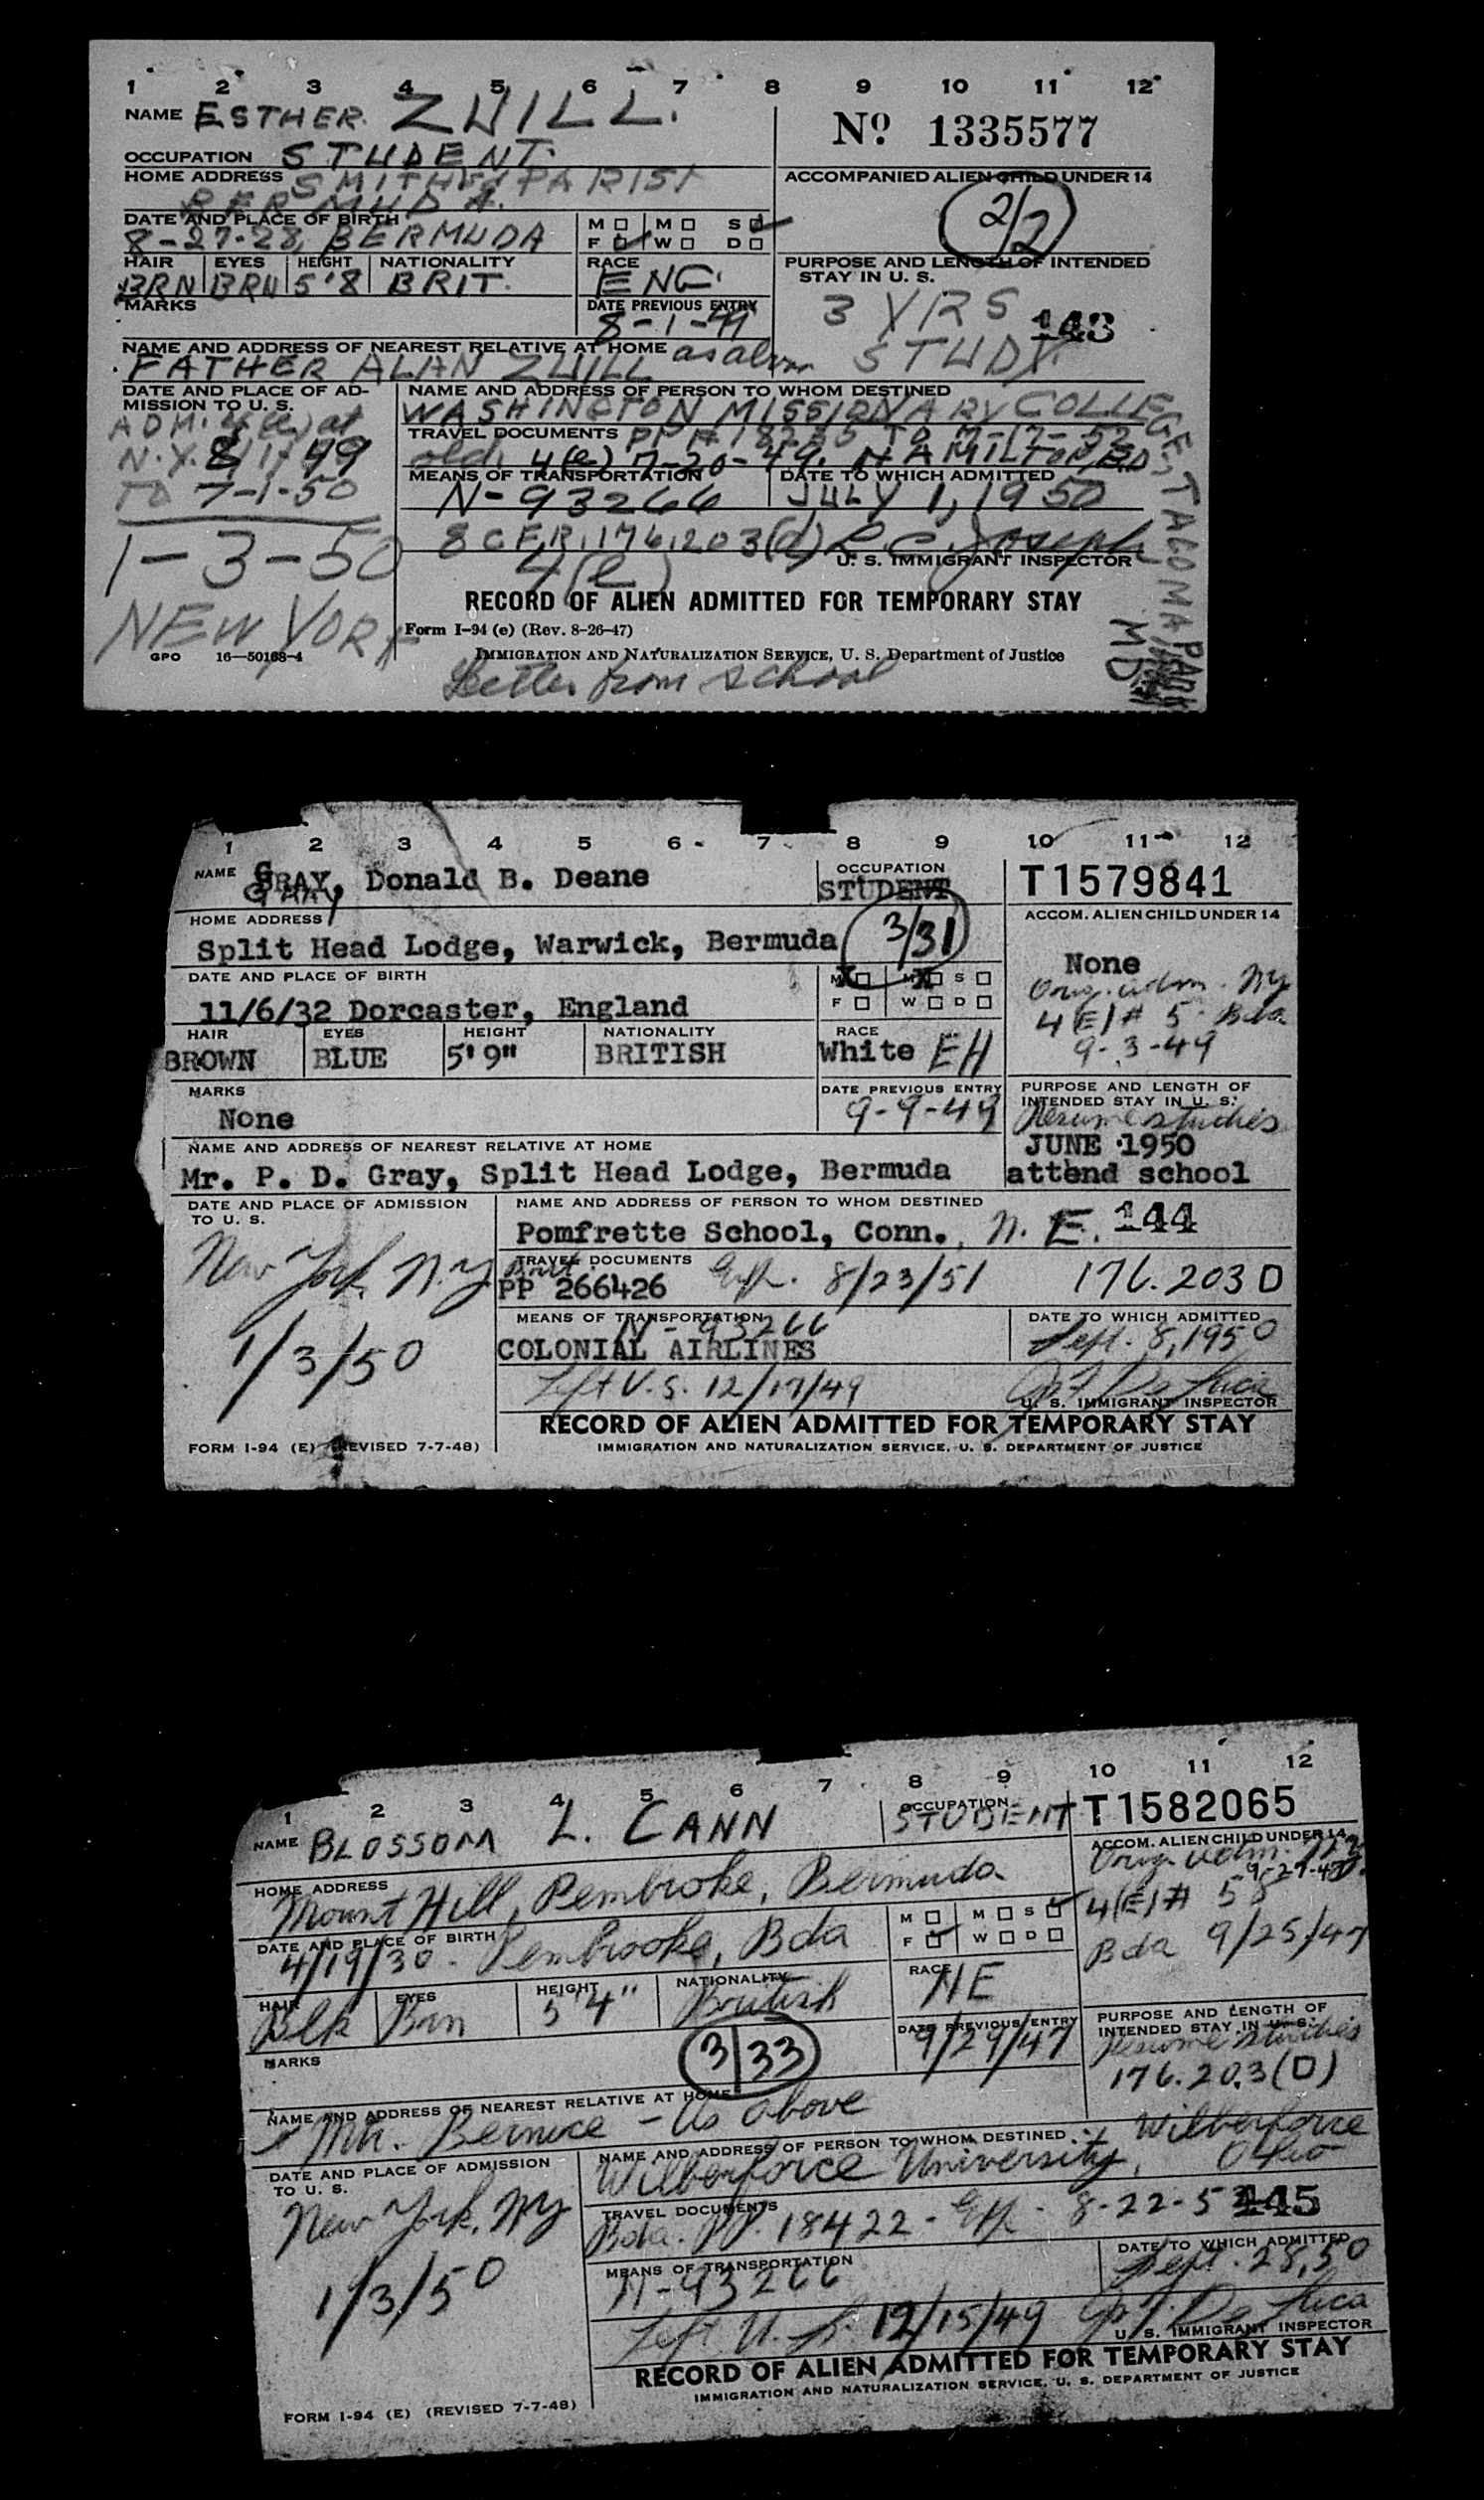 1 2 3 4 5 6 7 8 9 10 11 12
NAME ESTHER ZUILL.
No 1335577
OCCUPATION STUDENT.
HOME ADDRESS SMITH'S PARISH
BERMUDA.
ACCOMPANIED ALIEN CHILD UNDER 14
2/2
DATE AND PLACE OF BIRTH
8-27-28, BERMUDA
M M S
F W D
HAIR EYES HEIGHT NATIONALITY RACE
BRN BRN 5'8 BRIT. ENG.
PURPOSE AND LENGTH OF INTENDED
STAY IN U. S.
3 YRS
143
STUDY
MARKS
DATE PREVIOUS ENTRY
8-1-49
NAME AND ADDRESS OF NEAREST RELATIVE AT HOME as above
FATHER ALAN ZUILL
DATE AND PLACE OF AD-
MISSION TO U. S.
ADM. 4(e) at
N.Y. 8/1/49
TO 7-1-50
1-3-50
NEW YORK
NAME AND ADDRESS OF PERSON TO WHOM DESTINED
WASHINGTON MISSIONARY COLLEGE, TACOMA PARK
MD
TRAVEL DOCUMENTS PP # TO 7-17-52
4(e) 7-20-49. HAMILTON, BD
MEANS OF TRANSPORTATION
N-93266
DATE TO WHICH ADMITTED
JULY 1, 1950
8 CFR. 176.203(d) L. C. Joseph
4(e)
U. S. IMMIGRANT INSPECTOR
RECORD OF ALIEN ADMITTED FOR TEMPORARY STAY
Form I-94 (e) (Rev. 8-26-47)
GPO 16—50168-4
IMMIGRATION AND NATURALIZATION SERVICE, U. S. Department of Justice
Letter from school
1 2 3 4 5 6 7 8 9 10 11 12
NAME GRAY, Donald B. Deane
GRAY
OCCUPATION
STUDENT
T1579841
HOME ADDRESS
Split Head Lodge, Warwick, Bermuda
3/31
ACCOM. ALIEN CHILD UNDER 14
None
Orig. adm. NY
4(E) # 5 - Bda
9-3-49
DATE AND PLACE OF BIRTH
11/6/32 Dorcaster, England
M M S
F W D
HAIR EYES HEIGHT NATIONALITY RACE
BROWN BLUE 5'9" BRITISH White EH
MARKS
None
DATE PREVIOUS ENTRY
9-9-49
PURPOSE AND LENGTH OF
INTENDED STAY IN U. S.
Resume studies
JUNE 1950
attend school
NAME AND ADDRESS OF NEAREST RELATIVE AT HOME
Mr. P. D. Gray, Split Head Lodge, Bermuda
DATE AND PLACE OF ADMISSION
TO U. S.
New York, N.Y.
1/3/50
NAME AND ADDRESS OF PERSON TO WHOM DESTINED
Pomfrette School, Conn., N. E. 144
TRAVEL DOCUMENTS
Brit.
PP 266426 8/23/51 176.203 D
MEANS OF TRANSPORTATION
N-93266
COLONIAL AIRLINES
DATE TO WHICH ADMITTED
Sept. 8, 1950
Left U.S. 12/17/49
U. S. IMMIGRANT INSPECTOR
RECORD OF ALIEN ADMITTED FOR TEMPORARY STAY
FORM I-94 (E) (REVISED 7-7-48)
IMMIGRATION AND NATURALIZATION SERVICE, U. S. DEPARTMENT OF JUSTICE
1 2 3 4 5 6 7 8 9 10 11 12
NAME BLOSSOM L. CANN
OCCUPATION
STUDENT
T1582065
HOME ADDRESS
Mount Hill, Pembroke, Bermuda
ACCOM. ALIEN CHILD UNDER 14
Orig. adm. NY
9-29-47
4(E) # 58
Bda 9/25/47
DATE AND PLACE OF BIRTH
4/19/30 - Pembrooke, Bda
M M S
F W D
HAIR EYES HEIGHT NATIONALITY RACE
Blk Brn 5'4" British NE
MARKS
3/33
DATE PREVIOUS ENTRY
9/29/47
PURPOSE AND LENGTH OF
INTENDED STAY IN U. S.
Resume studies
176.203(D)
NAME AND ADDRESS OF NEAREST RELATIVE AT HOME
Mr. Bernice - As above
DATE AND PLACE OF ADMISSION
TO U. S.
New York, NY
1/3/50
NAME AND ADDRESS OF PERSON TO WHOM DESTINED
Wilberforce University, Wilberforce
Ohio
TRAVEL DOCUMENTS
Bda. PP. 18422 - 8-22-5 145
MEANS OF TRANSPORTATION
N-93266
DATE TO WHICH ADMITTED
Sept. 28, 50
Left U.S. 12/15/49
U. S. IMMIGRANT INSPECTOR
RECORD OF ALIEN ADMITTED FOR TEMPORARY STAY
IMMIGRATION AND NATURALIZATION SERVICE, U. S. DEPARTMENT OF JUSTICE
FORM I-94 (E) (REVISED 7-7-48)